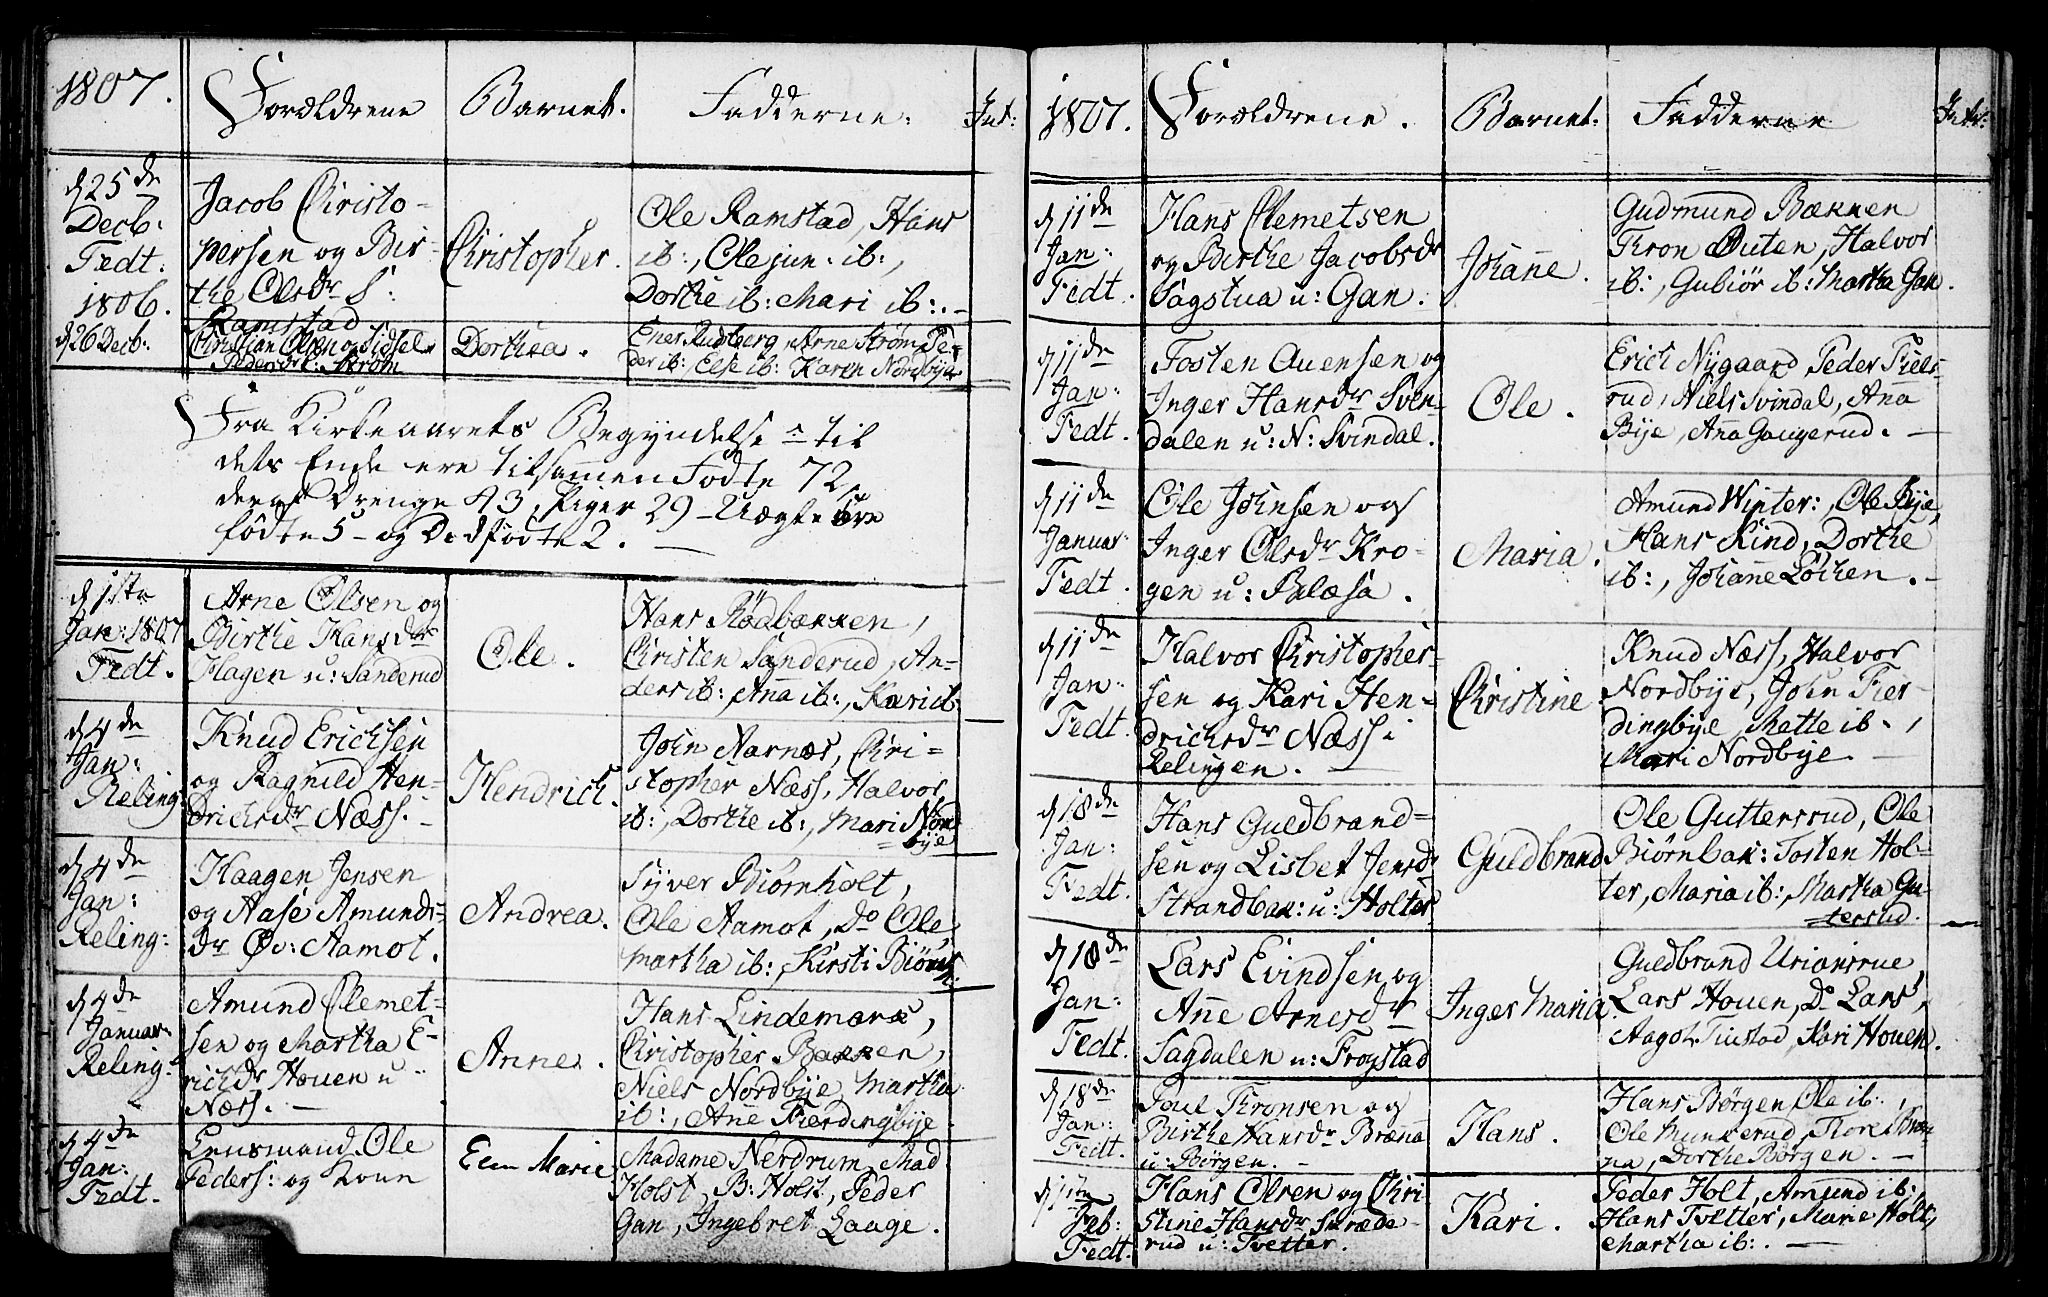 1807.
Forældrene
Barnet.
Fadderne.
Int:
d 25de
Decb:
Fedt:
1806.
Jacob Christo-
persen og Bir-
the Olsdr S:
Ramstad
Christopher.
Ole Ramstad, Hans
ib:, Ole jun. ib:,
Dorthe ib: Mari ib:. -
d 26 Decb:
Christian Olsen og Sidsel
Pedersdr E: Strøm
Dorthea.
Ener Rudsberg, Arne Strøm, Pe-
der ib:, Else ib: Karen Nordbye
Fra Kirkeaarets Begyndelse til
dets Ende ere tilsammen Fødte 72,
deraf Drenge 43, Piger 29 - Uægte ere
fødte 5 - og Dødfødte 2. -
d 1ste
Jan: 1807
Fedt.
Arne Olsen og
Birthe Hansdr
Hagen u: Sanderud
Ole.
Hans Rødbakken,
Christen Sanderud, An-
ders ib: Anna ib:, Kari ib.
d 4de
Jan:
Reling:
Knud Erichsen
og Ragnild Hen-
drichsdr Næss. -
Hendrich.
John Narnæs, Chri-
stopher Næss, Halvor
ib:, Dorthe ib:, Mari Nord
bye
d 4de
Jan:
Reling:
Haagen Jensen
og Aase Amunds-
dr Øv: Aamot.
Andrea.
Syver Biørnholt,
Ole Aamot, Do Ole
Martha ib:, Kirsti Biørnh.
d 4de
Januar
Reling:
Amund Clemet-
sen og Martha E-
richsdr Houen u
Næss. -
Anne.
Hans Lindemark,
Christopher Bakken,
Niels Nordbye, Martha
ib:, Anne Fierdingbye.
d 4de
Jan:
Fedt.
Lensmand Ole
Peders: og Kone
Elen Marie
Madame Nerdrum, Mad
Holst, B: Holst, Peder
Gan, Ingebret Laage.
1807.
Forældrene.
Barnet:
Fadderne
Intr:
d 11de
Jan:
Fedt.
Hans Clemetsen
og Birthe Jacobsdr
Sagstua u: Gan.
Johanne.
Gudmund Bækken
Tron Outen, Halvor
ib:, Gubiør ib: Martha Gan.
d 11de
Jan:
Fedt.
Tosten Auensen og
Inger Hansdr Sven-
dalen u: N: Svindal.
Ole.
Erich Nygaard, Peder Fiels-
rud, Niels Svindal, Anna
Bye, Anna Gaugerud. -
d 11de
Januar
Fedt.
Ole Johnsen og
Inger Olsdr Kro-
gen u: Balæsa.
Maria.
Amund Winter:, Ole Bye,
Hans Kind, Dorthe
ib:, Johanne Løchen. -
d 11de
Jan:
Fedt.
Halvor Christopher-
sen og Kari Hen-
drichsdr Næss i
Relingen. -
Christine.
Knud Næss, Halvor
Nordbye, John Fier-
dingbye, Mette ib.,
Mari Nordbye. -
d 18de
Jan:
Fedt.
Hans Guldbrand-
sen og Lisbet Jensdr
Strandbak: u: Holter
Guldbrand
Ole Guttersrud, Ole
Biørnbak: Tosten Hol-
ter, Maria ib:, Martha Gu-
tersrud.
d 18de
Jan:
Fedt.
Lars Evindsen og
Anne Arnesdr
Sagdalen u: Frogstad
Inger Maria.
Guldbrand Urianrue,
Lars Houen, Do Lars,
Aagot Tuestad, Kari Houen.
d 18de
Jan:
Fedt.
Poul Tronsen og
Birthe Hansdr Brænna
u: Børgen. -
Hans.
Hans Børgen, Ole ib:,
Ole Munkerud, Tore Bræn-
na, Dorthe Børgen. -
d 1ste
Feb:
Fedt.
Hans Olsen og Chri
stine Hansdr Skræde-
rud u: Tvetter.
Kari.
Peder Holt, Amund ib:,
Hans Tvetter, Marie Holt,
Martha ib:. -